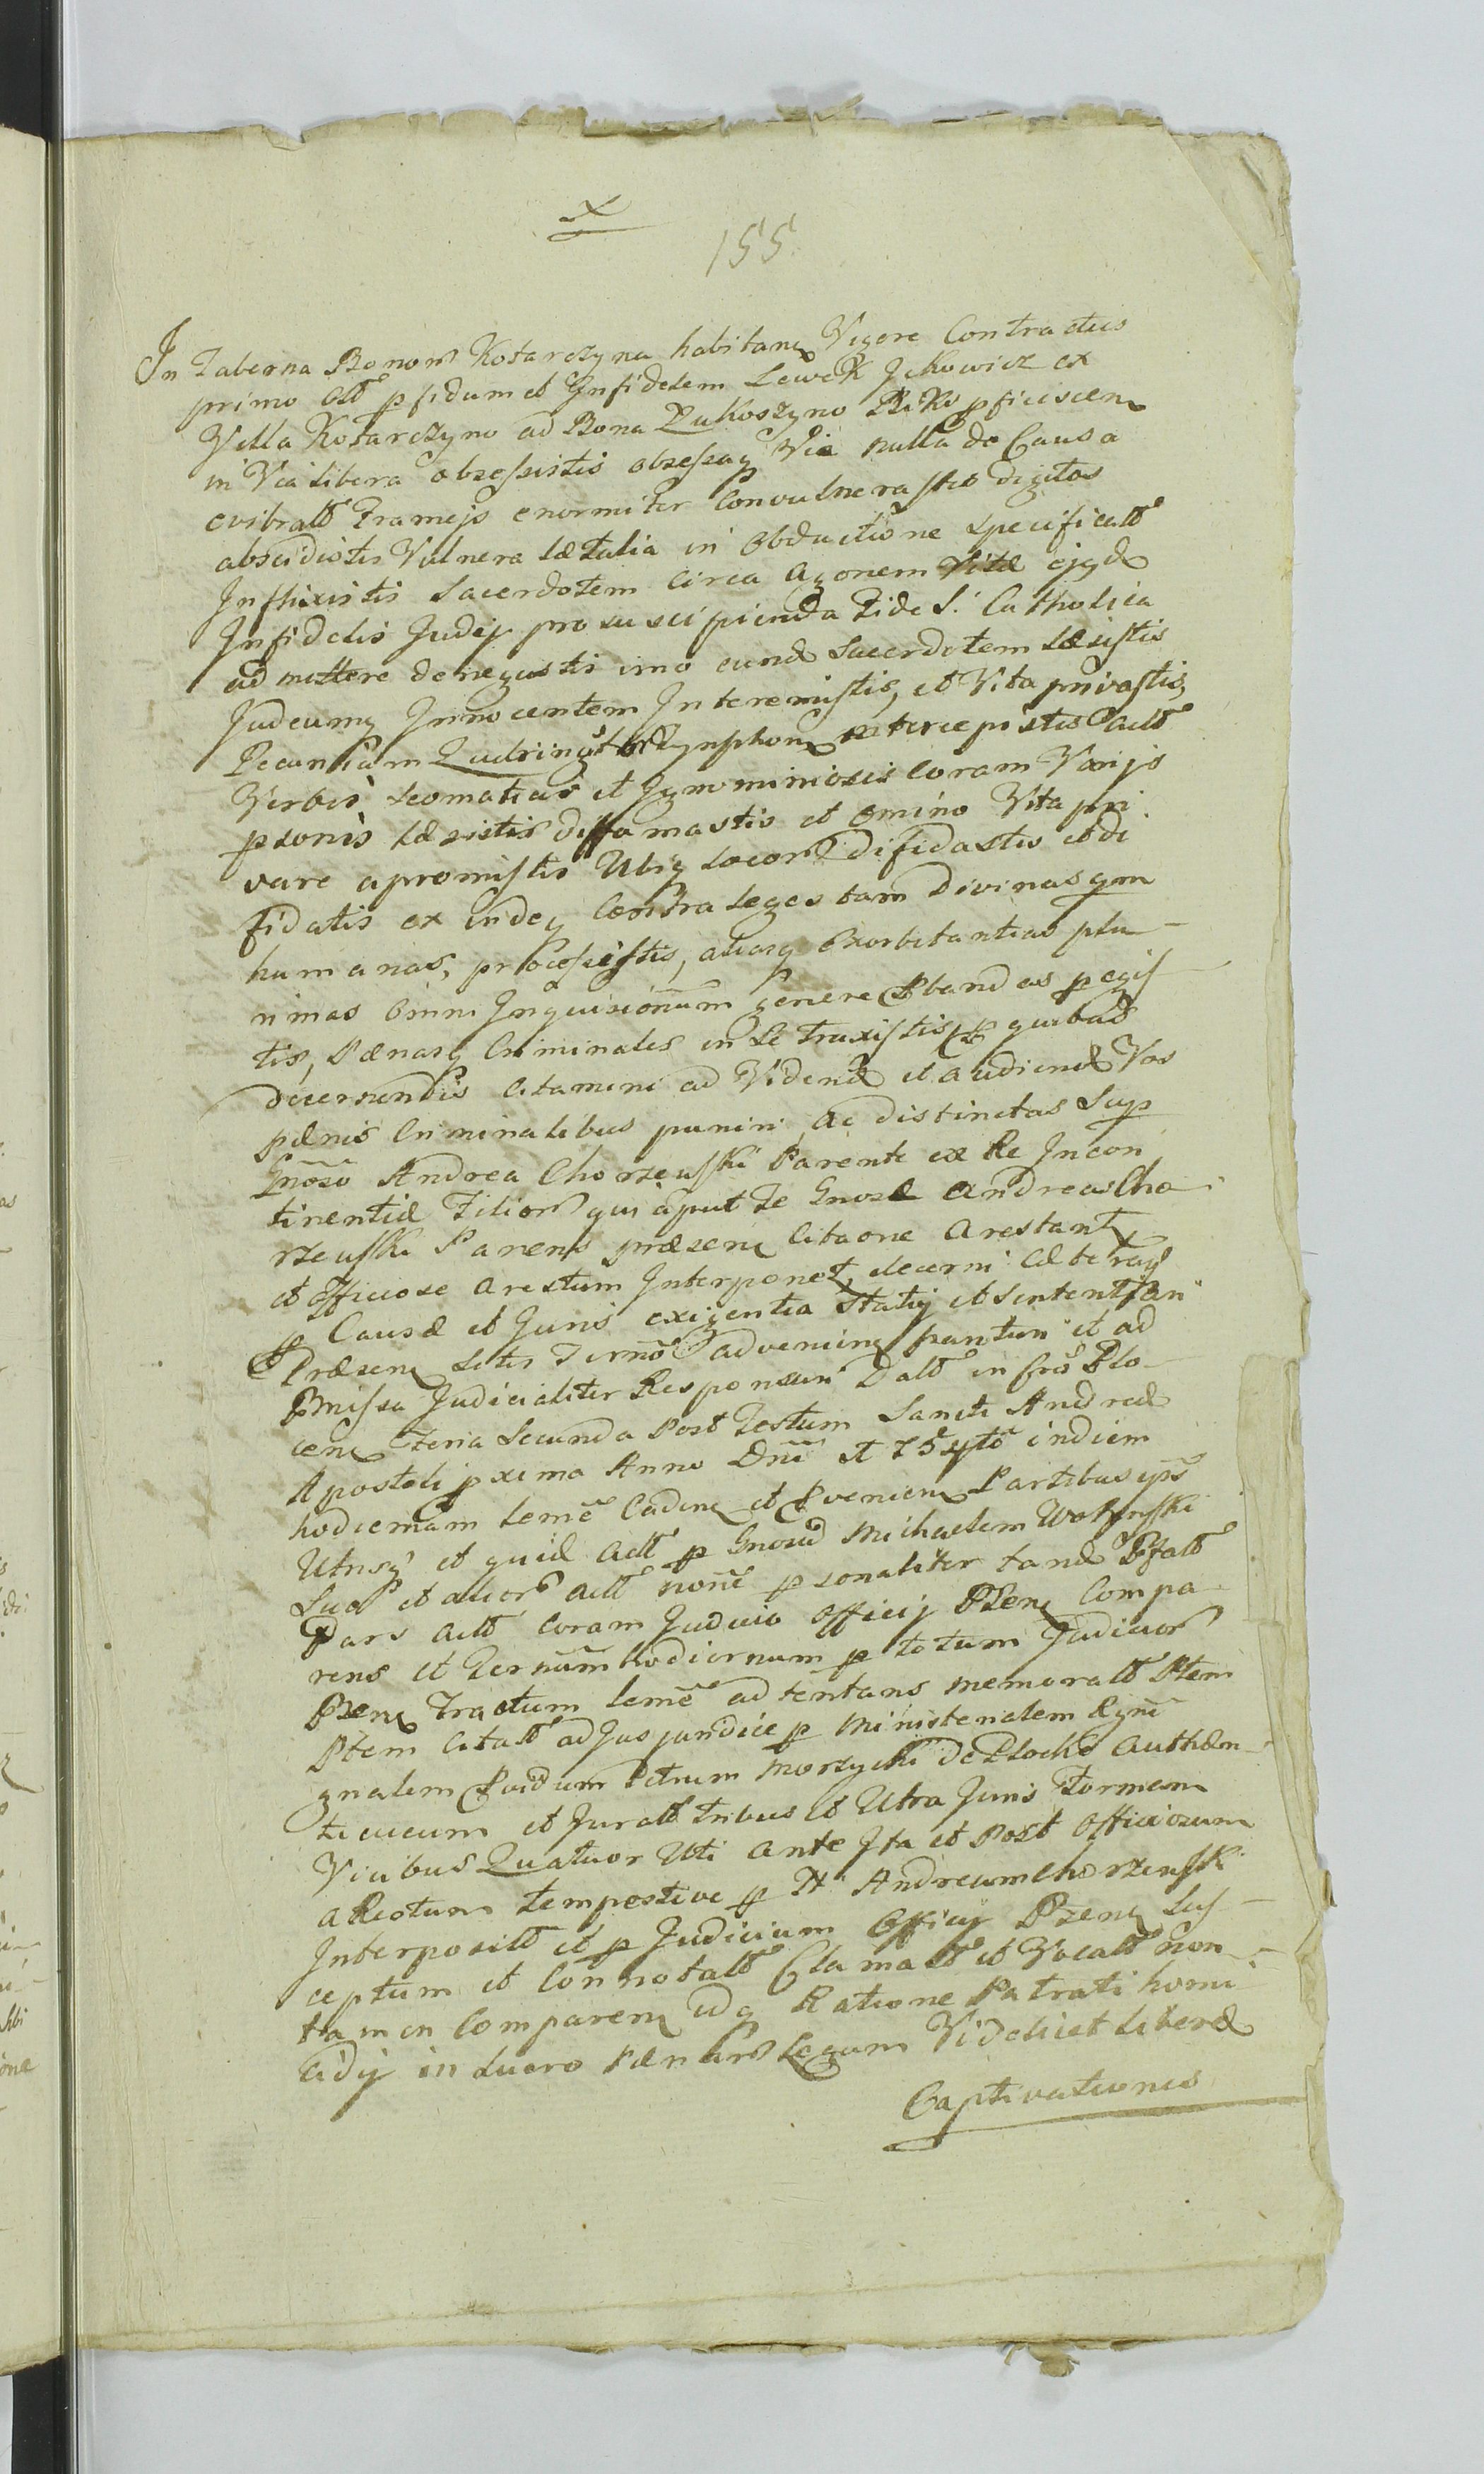 x
155
In Taberna Bonorũ Kotarczyna habitanꝫ Vigore Contractus
primo Olt͠ ꝑfidum et Infidelem Lewek Jckowicz ex
Villa Kotarczyno ad Bona Lukoszyno Biki ꝓficiscenꝫ
in Via libera obsessistis obsessaqꝫ Via nulla de Causa
evibratt͠ Framejs enormiter Convulnerastis digitos
abscidistis Vulnera lætalia in Obductione specificatt͠
Inflixistis Sacerdotem Circa Agonem Vitæ ejqd
Infidelis Judej pro suscipienda Fide S. Catholica
admittere denegastis imo eund Sacerdotem læsistis
Judeumqꝫ Innocentem Interemistis, et Vita privastis,
Pecuniam intercepistis Actt͠
Verbis scomaticis et Ignominiosis Coram Varijs
ꝑsonis læsistis diffamastis et omino Vita pri
vare apromistis Ubiqꝫ locorũ difidastis et di
fidatis ex indeqꝫ Contra Leges tam Divinas qm
humanas, processistis, aliasqꝫ Exorbitantias plu-
rimas Omni Inquisionum genere ꝓbandas ꝑegis-
tis, Pænasqꝫ Criminales in se traxistis ꝓ quibus
decernendis Citamini ad Videnđ et Audienđ Vos
pænis Criminalibus puniri Ac distinctas Suꝑ
Gnõso Andrea Chorzewski Parente ex Re Incon
tinentiæ Filiorũ qui aput Te Gnose Andreas Cho-
rzewski Parens præsenꝫ Citaone Arestantꝫ
et Officiose Arestum Interponetꝫ decerni Cæteraqꝫ
ꝓ Causæ et Juris exigentia Statuj et Sententiari
Præsenꝫ Litis Termõ advenienꝫ pariturj et ad
Pmissa Judicialiter Responsurj Datt͠ in Cros Plo-
cenꝫ Feria Secunda Post Festum Sancti Andreæ
Apostoli ꝓxima Anno Dnĩ 175 indiem
hodiernam Lemẽ Cadenꝫ et ꝓvenienꝫ Partibus ips
Utrisqꝫ et quid Actt͠ ꝑ Gnosũ Michaelem Wolynski
Suo et aliorũ Actt͠ noñe ꝑsonaliter tand Pfatt͠
Pars Actt͠ Coram Judicio Officij Pzenꝫ Compa-
rens et Termĩnum hodiernum ꝑ totum Judiciorũ
Pzenꝫ Tractum Lemẽ adtentans memoratt͠ Ptem
Ptem Citatt͠ ad Jus juridice ꝑ Ministerialem Rgni
gnalem Pvidum Petrum Morzycki de Plocko Authæn-
ticucum et Juratt͠ Tribus et Ultra Juris Formam
Vicibus Quatuor Uti ante Ita et Post Officiosum
Arestum tempestive ꝑ N. Andream Chorzewski
Interpositt͠ et ꝑ Judicium Officij Pzenꝫ Sus-
ceptum et Connotatt͠ Clamatt͠ et Vocatt͠ non-
tamen Comparenꝫ idqꝫ Ratione Patrati homi-
cidij in Lucro Pænarũ Legum Videlicet Liberæ
Captivationis